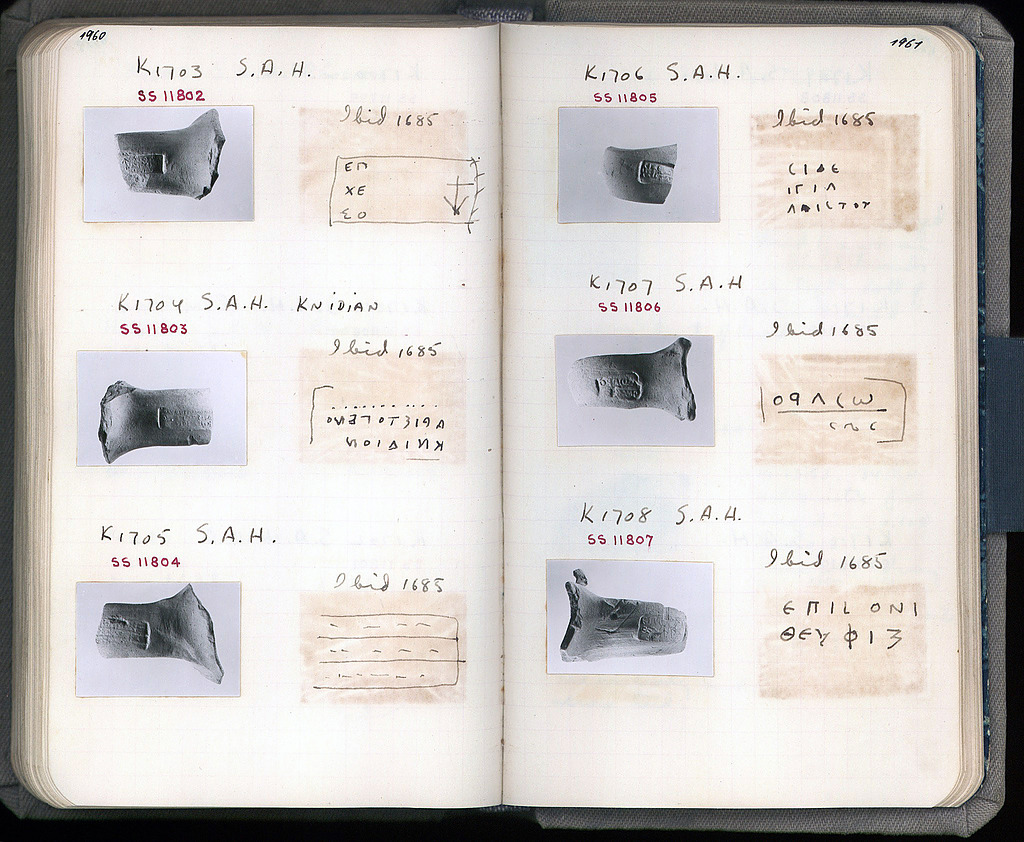 1960
K1703 S.A.H.
SS 11802
Ibid 1685
ΕΠ
ΧΕ
ΣΟ
K1704 S.A.H. KNIDIAN
SS 11803
Ibid 1685
ΚΝΙΔΙΟΝ
K1705 S.A.H.
SS 11804
Ibid 1685
1961
K1706 S.A.H.
SS 11805
Ibid 1685
K1707 S.A.H
SS 11806
Ibid 1685
K1708 S.A.H.
SS 11807
Ibid 1685
ΕΠΙΣ ΟΝΙ
ΘΕΥΦΙΣ